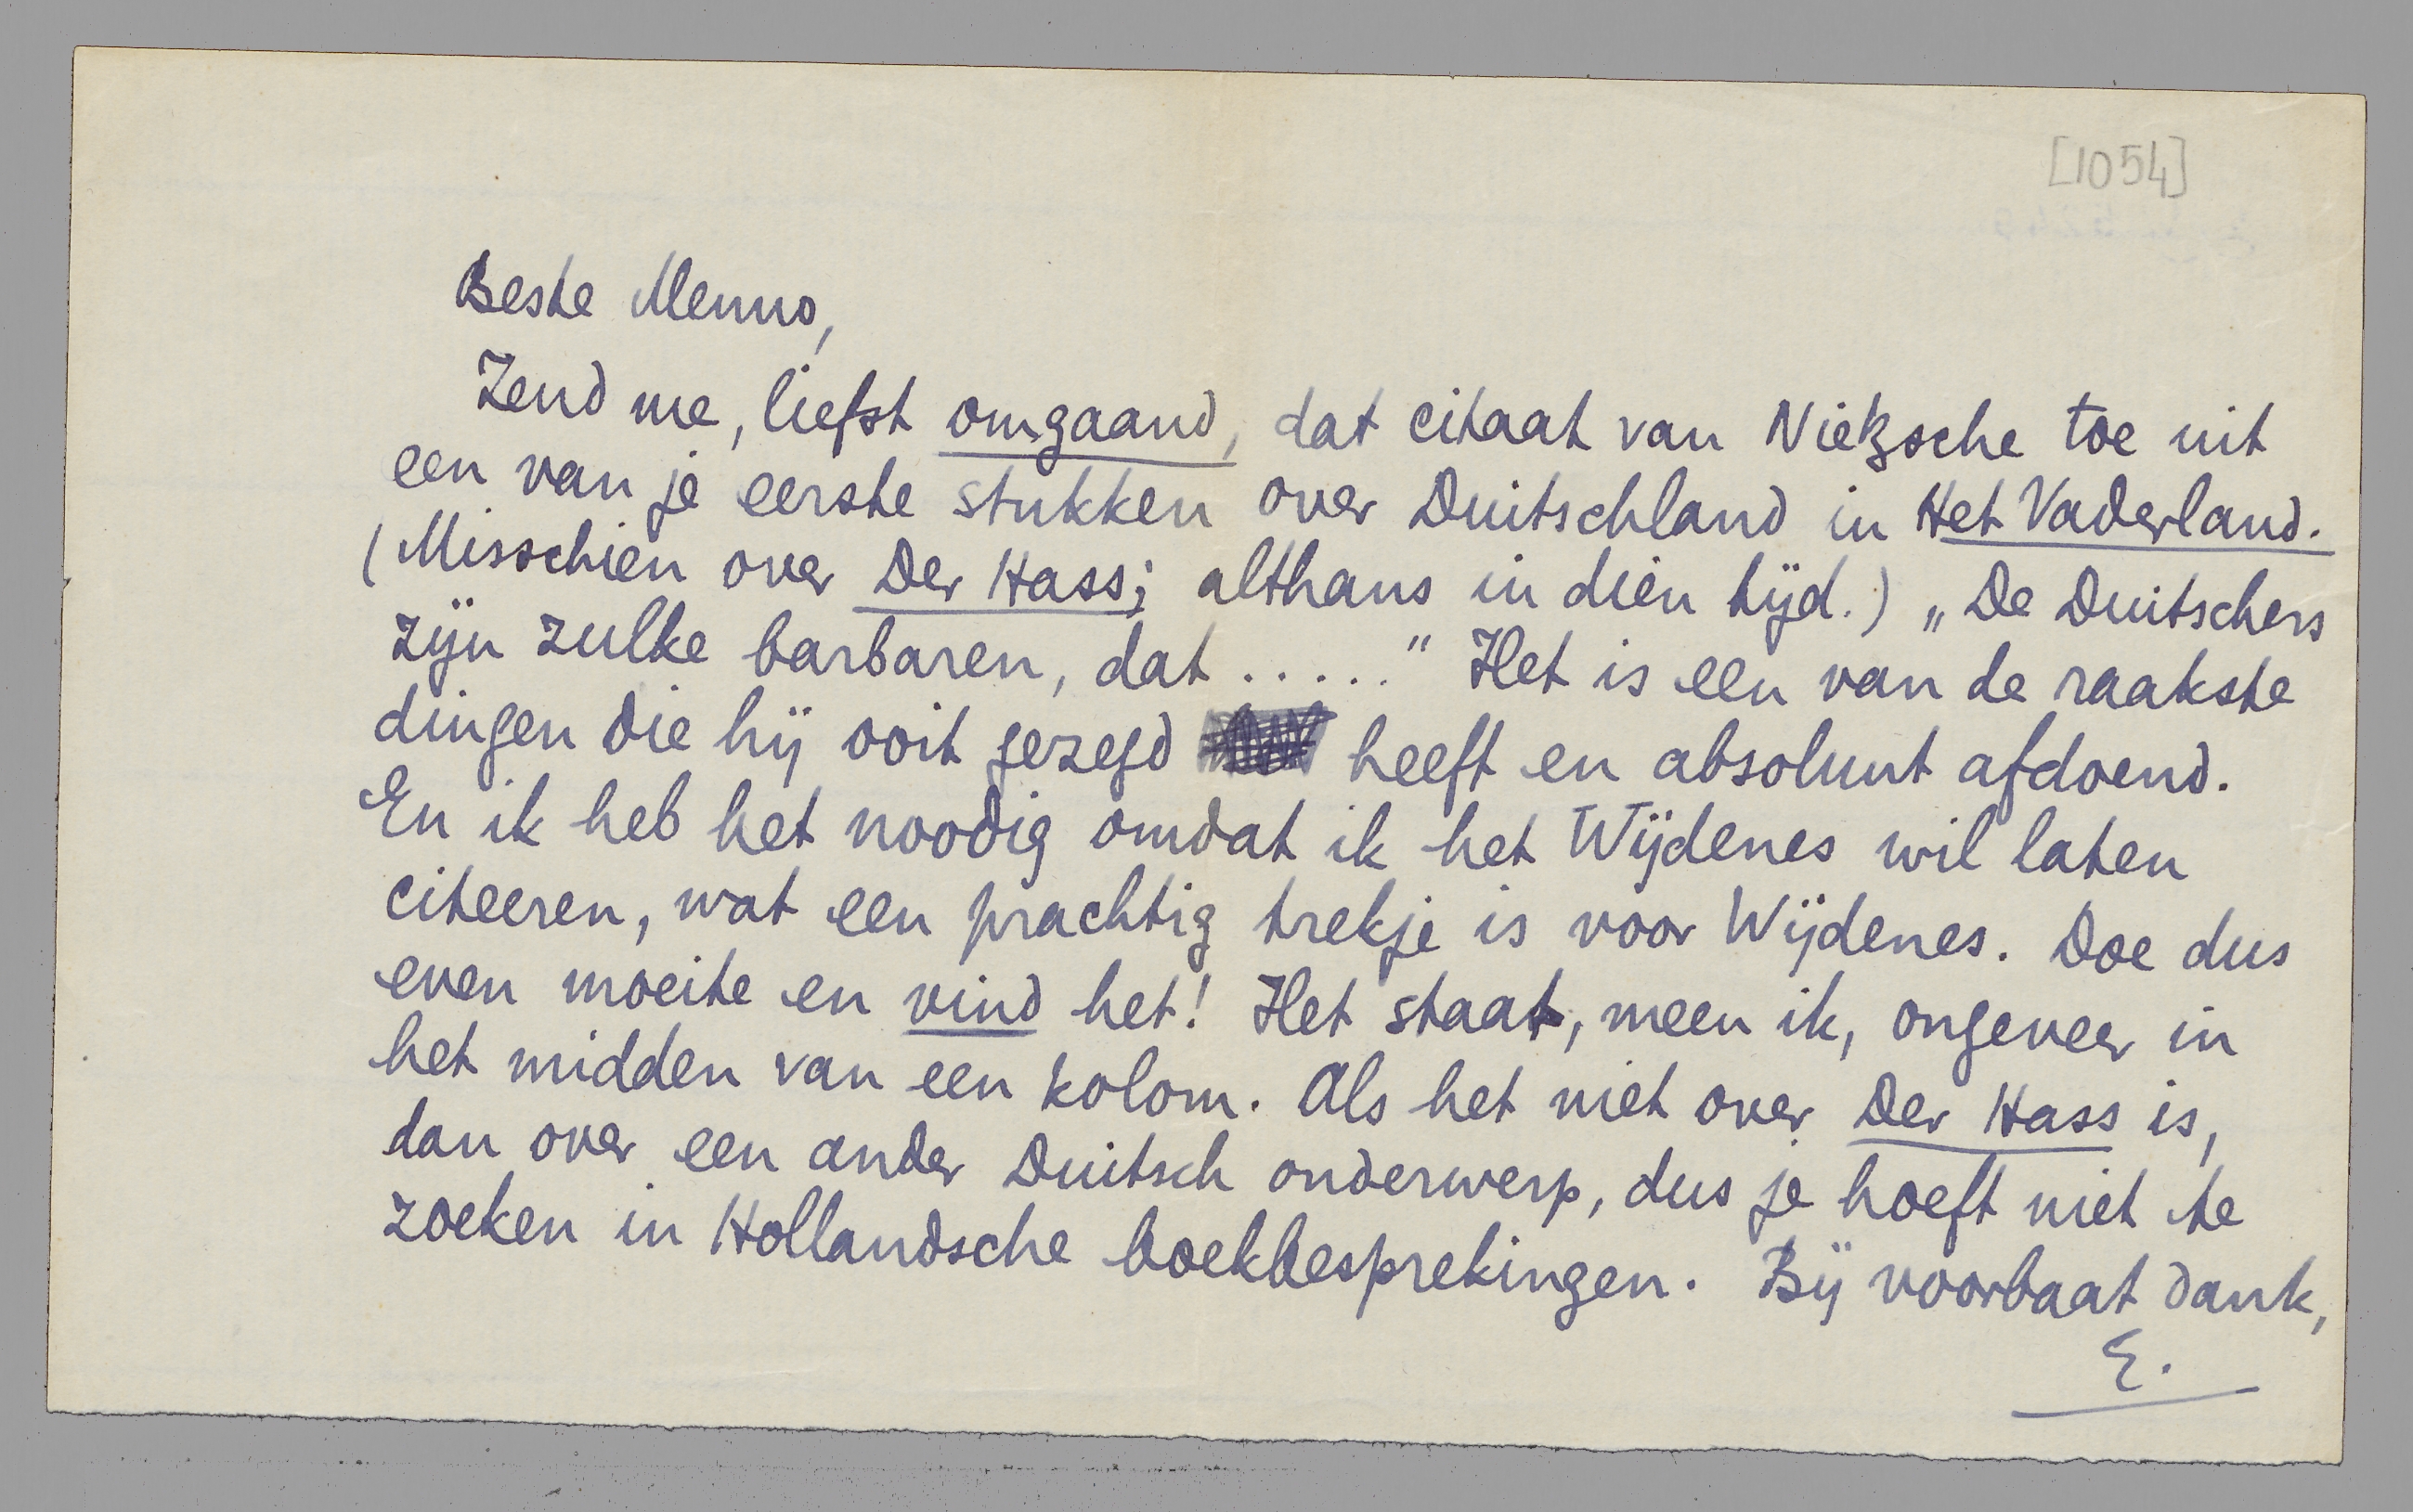 [1054]
Beste Menno,
Zend me, liefst omgaand, dat citaat van Nietzsche toe uit
een van je eerste stukken over Duitschland in Het Vaderland.
(Misschien over Der Hass; althans in dien tijd.) „De Duitschers
zijn zulke barbaren, dat ....." Het is een van de raakste
dingen die hij ooit gezegd heeft en absoluut afdoend.
En ik heb het noodig omdat ik het Wijdenes wil laten
citeeren, wat een prachtig trekje is voor Wijdenes. Doe dus
even moeite en vind het! Het staat, meen ik, ongeveer in
het midden van een kolom. Als het niet over Der Hass is,
dan over een ander Duitsch onderwerp, dus je hoeft niet te
zoeken in Hollandsche boekbesprekingen. Bij voorbaat dank,
E.